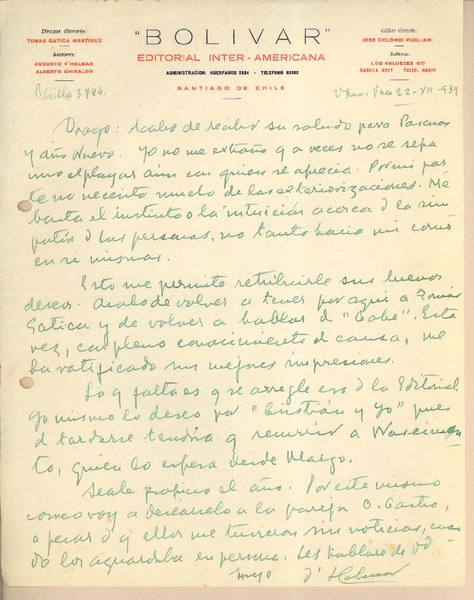 Director Literario:
TOMAS GATICA MARTINEZ
Asesores:
AUGUSTO D'HALMAR
ALBERTO GHIRALDO
"BOLIVAR"
EDITORIAL INTER-AMERICANA
ADMINISTRACION: HUERFANOS 2934 - TELEFONO 62362
SANTIAGO DE CHILE
Editor Gerente:
JOSE COLOMBI PUGLIANI
Talleres:
LOS VALDESES 677
Casilla 3744.
Vpso. Paa 22-XII-939
Drago: Acabo de recibir su saludo para Pascuas
y Año Nuevo. Yo no me extraño q a veces no se sepa
uno el plagar aún con quien se aprecia. Por mi par
te no necesito mucho de las exteriorizaciones. Me
basta el instinto o la intuición acerca d la sim
patía d las personas, no tanto hacia mí como
en sí mismas.
Esto me permite retribuirle sus buenos
deseos. Acabo de volver a tener por aquí a Tomás
Gatica y de volver a hablar d "Cabo". Esta
vez, con pleno conocimiento d causa, me
ha ratificado mis mejores impresiones.
Lo q falta es q se arregle eso d la Editorial.
Yo mismo lo deseo por "Cristián y Yo" pues
d tardarse tendría q recurrir a Nascimen
to, quien lo espera desde Mayo.
Seale propicio el año. Por este mismo
correo voy a deseárselo a la pareja O. Castro,
a pesar d q ellos me tuvieron sin noticias, cuan
do los aguardaba en persona. Les hablare de Vd
suyo d'Halmar